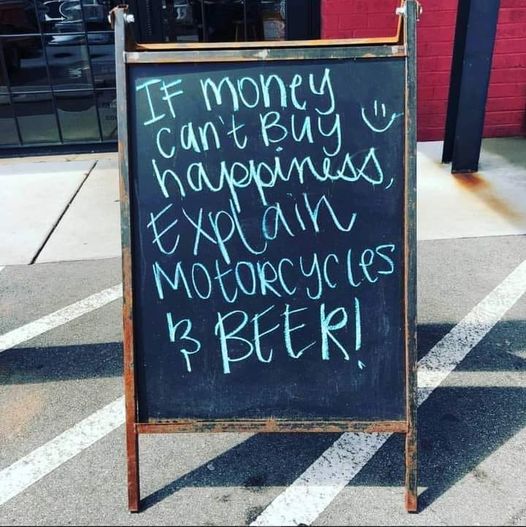 IF money
can't Buy
happiness,
Explain
MOTORCYCLES
& BEER!